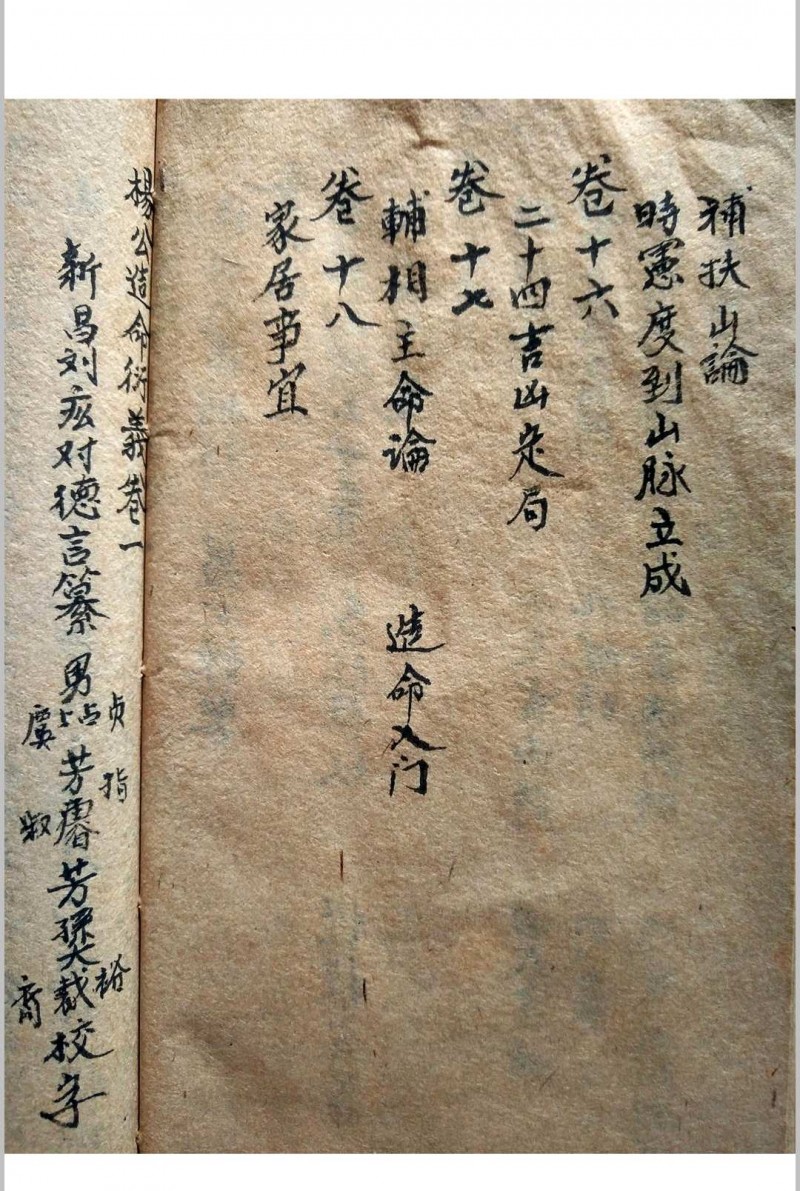 補扶山論
時憲度到山脉立成
卷十六
二十四吉凶定局
卷十七
輔相主命論 造命入门
卷十八
家居事宜
楊公造命衍義卷一
新昌刘 对德言纂 男 芳 芳 裁校字
贞
虞
指
叔
裕
裔